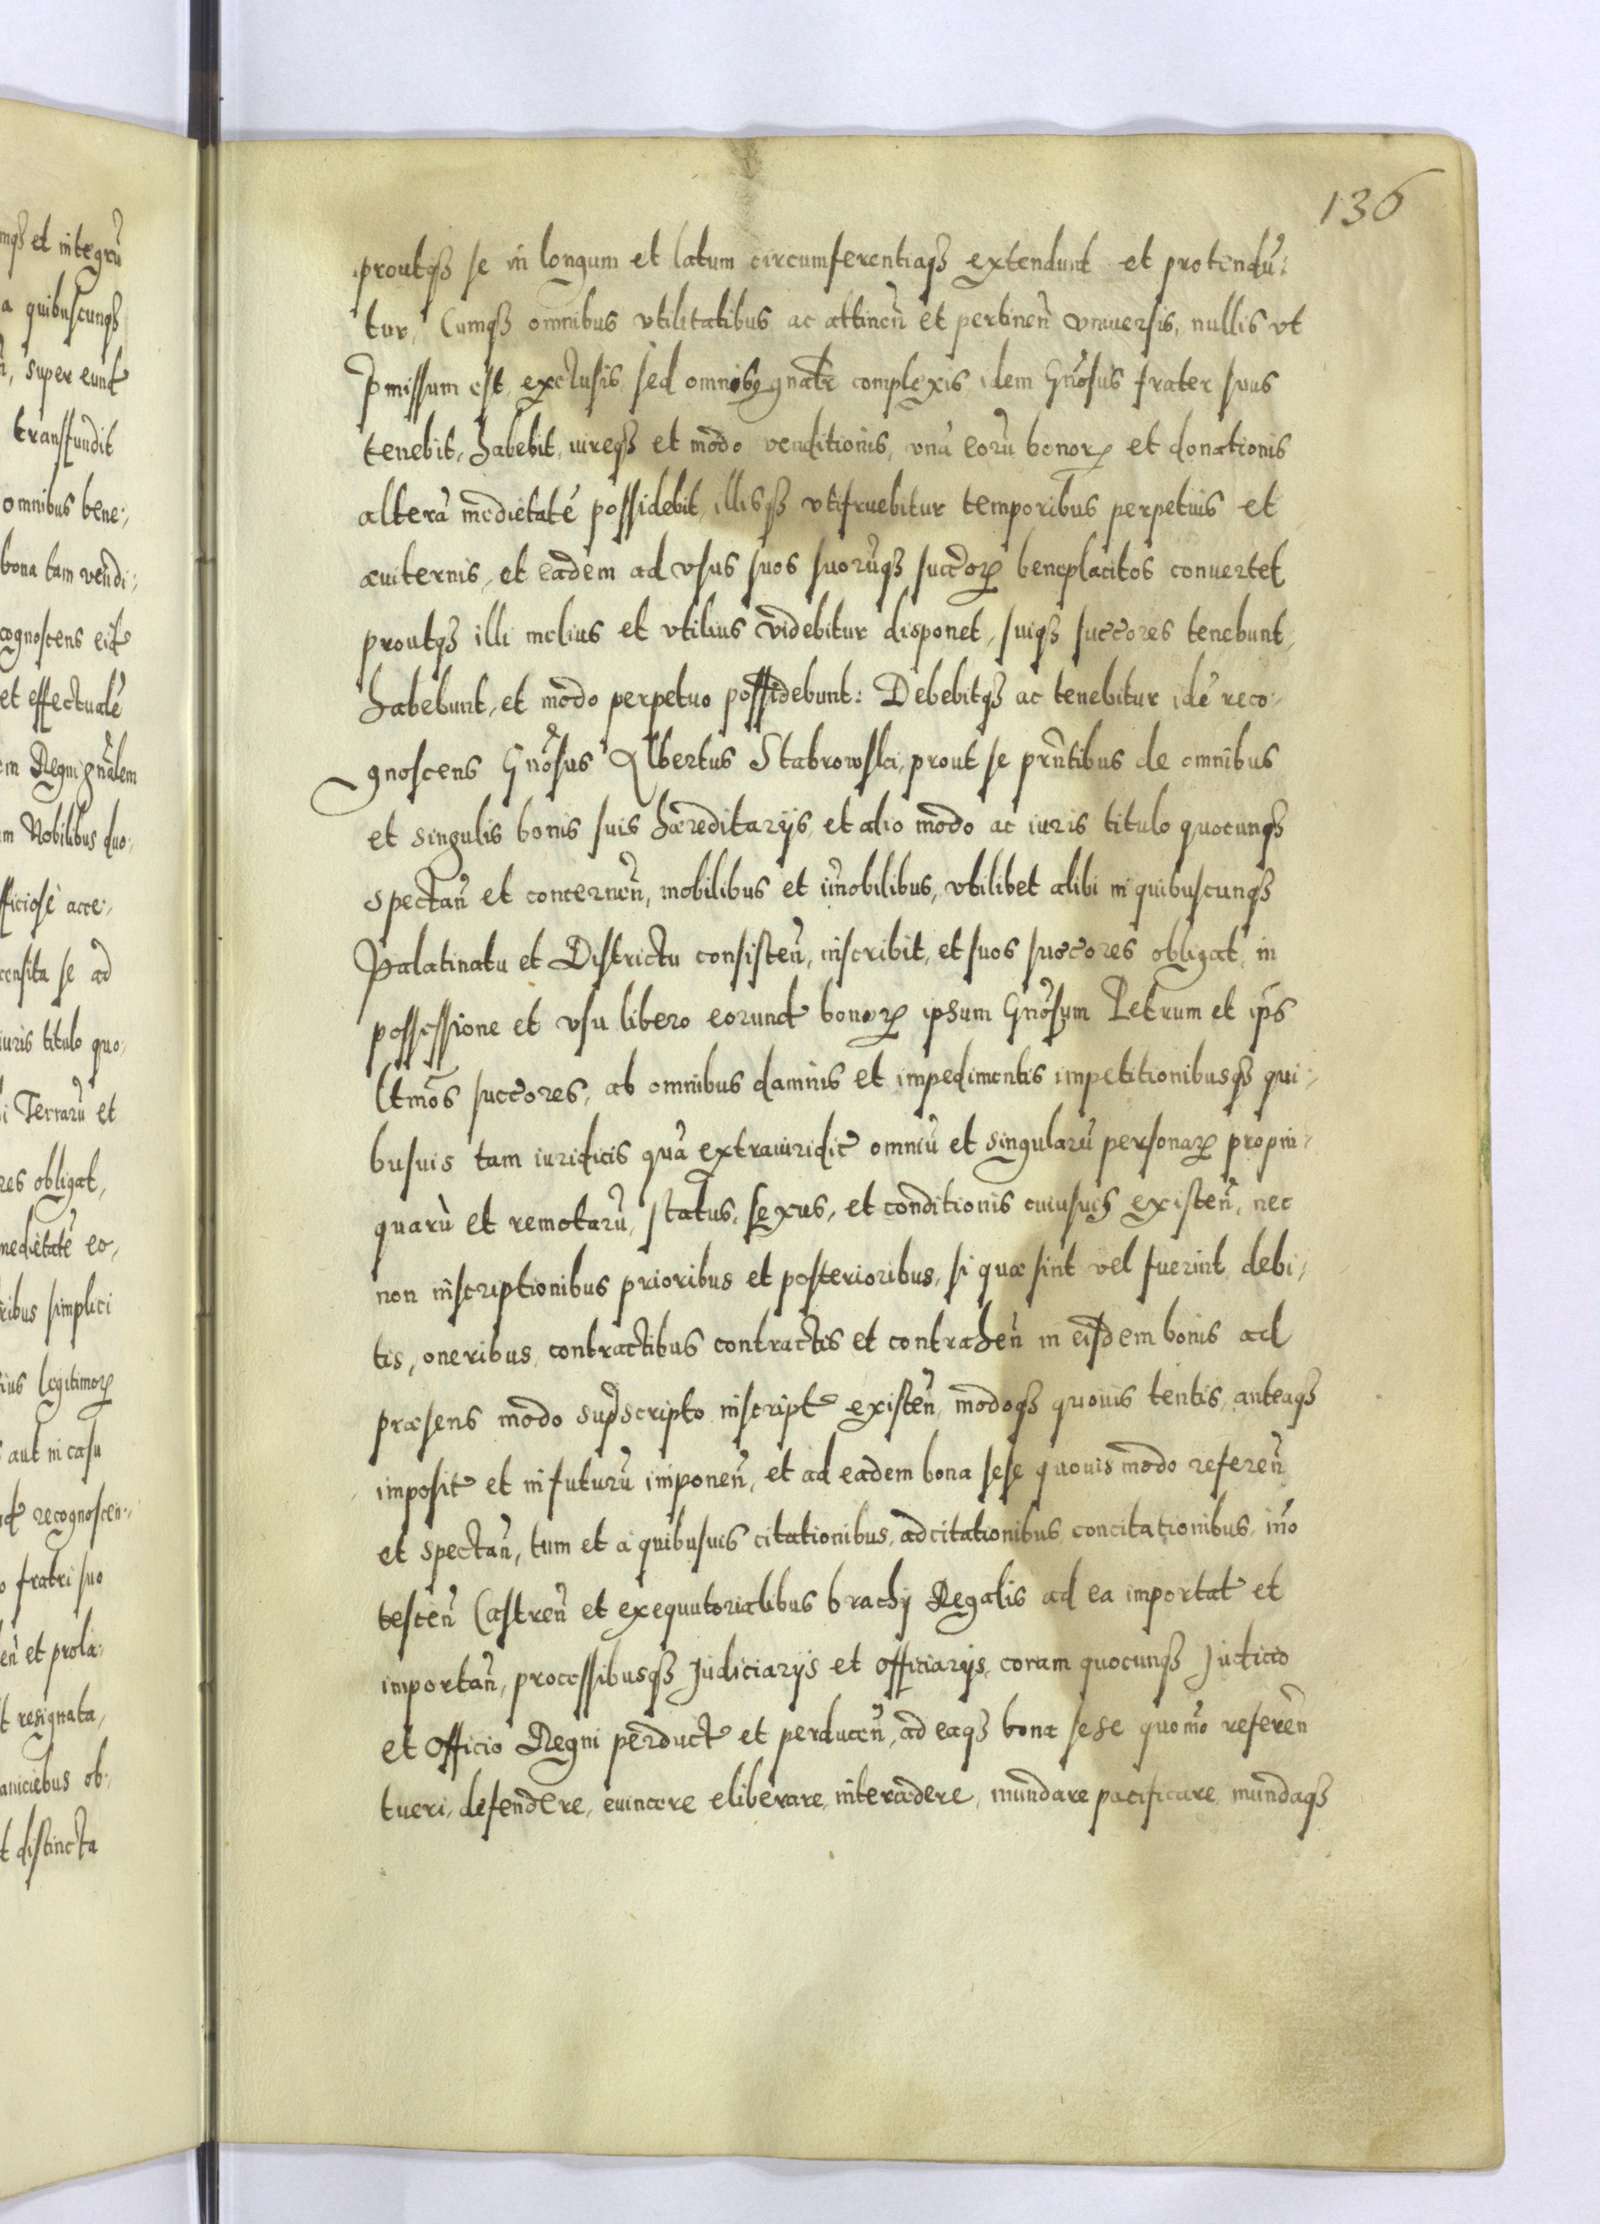 136
proutqȝ se in longum et latum circumferentiaqȝ extendunt et protendū:
tur, Cumqȝ omnibus vtilitatibus ac attineñ et pertineñ vniuersis, nullis vt
p̄missum est, exclusis sed omnibȝ gnãtr complexis idem Gñosus frater suus
tenebit, habebit, iureqȝ et modo venditionis, vnā eorū bonoꝝ et donationis
alterā medietatē possidebit, illisqȝ vtifruebitur temporibus perpetuis et
æuiternis, et eadem ad vsus suos suorūqȝ succōꝝ beneplacitos conuertet
proutqȝ illi melius et vtilius videbitur disponet, suiqȝ succōres tenebunt,
habebunt, et modo perpetuo possidebunt: Debebitqȝ ac tenebitur idē reco:
gnoscens Gñosus Albertus Stabrowski, prout se prñtibus de omnibus
et singulis bonis suis hæreditarijs, et alio modo ac iuris titulo quocunqȝ
spectañ et concerneñ, mobilibus et im̃obilibus, vbilibet alibi in quibuscunqȝ
Palatinatu et Districtu consisteñ, inscribit, et suos succōres obligat, in
possessione et vsu libero eorund bonoꝝ ipsum Gñosum Petrum et ip̃s
Ltmōs succōres, ab omnibus damnis et impedimentis impetitionibusqȝ qui:
busuis tam iuridicis quā extraiuridic omniū et singularū personaꝝ propin:
quarū et remotarū, status, sexus, et conditionis cuiusuis existeñ, nec
non inscriptionibus prioribus et posterioribus, si quæ sint vel fuerint, debi:
tis, oneribus, contractibus contractis et contraheñ in eisdem bonis ad
præsens modo sup̄scripto inscript existeñ, modoqȝ quouis tentis, anteaqȝ
imposit et in futurū imponeñ, et ad eadem bona sese quouis modo refereñ
et spectañ, tum et a quibusuis citationibus, adcitationibus concitationibus, iño
tesceñ Castreñ et exequutorialibus brachij Regalis ad ea importat et
importañ, processibusqȝ Judiciarijs et Officiarijs, coram quocunqȝ Judicio
et Officio Regni perduct et perduceñ, ad eaqȝ bona sese quom̃o refereñ
tueri, defendere, euincere eliberare, intercedere, mundare pacificare, mundaqȝ